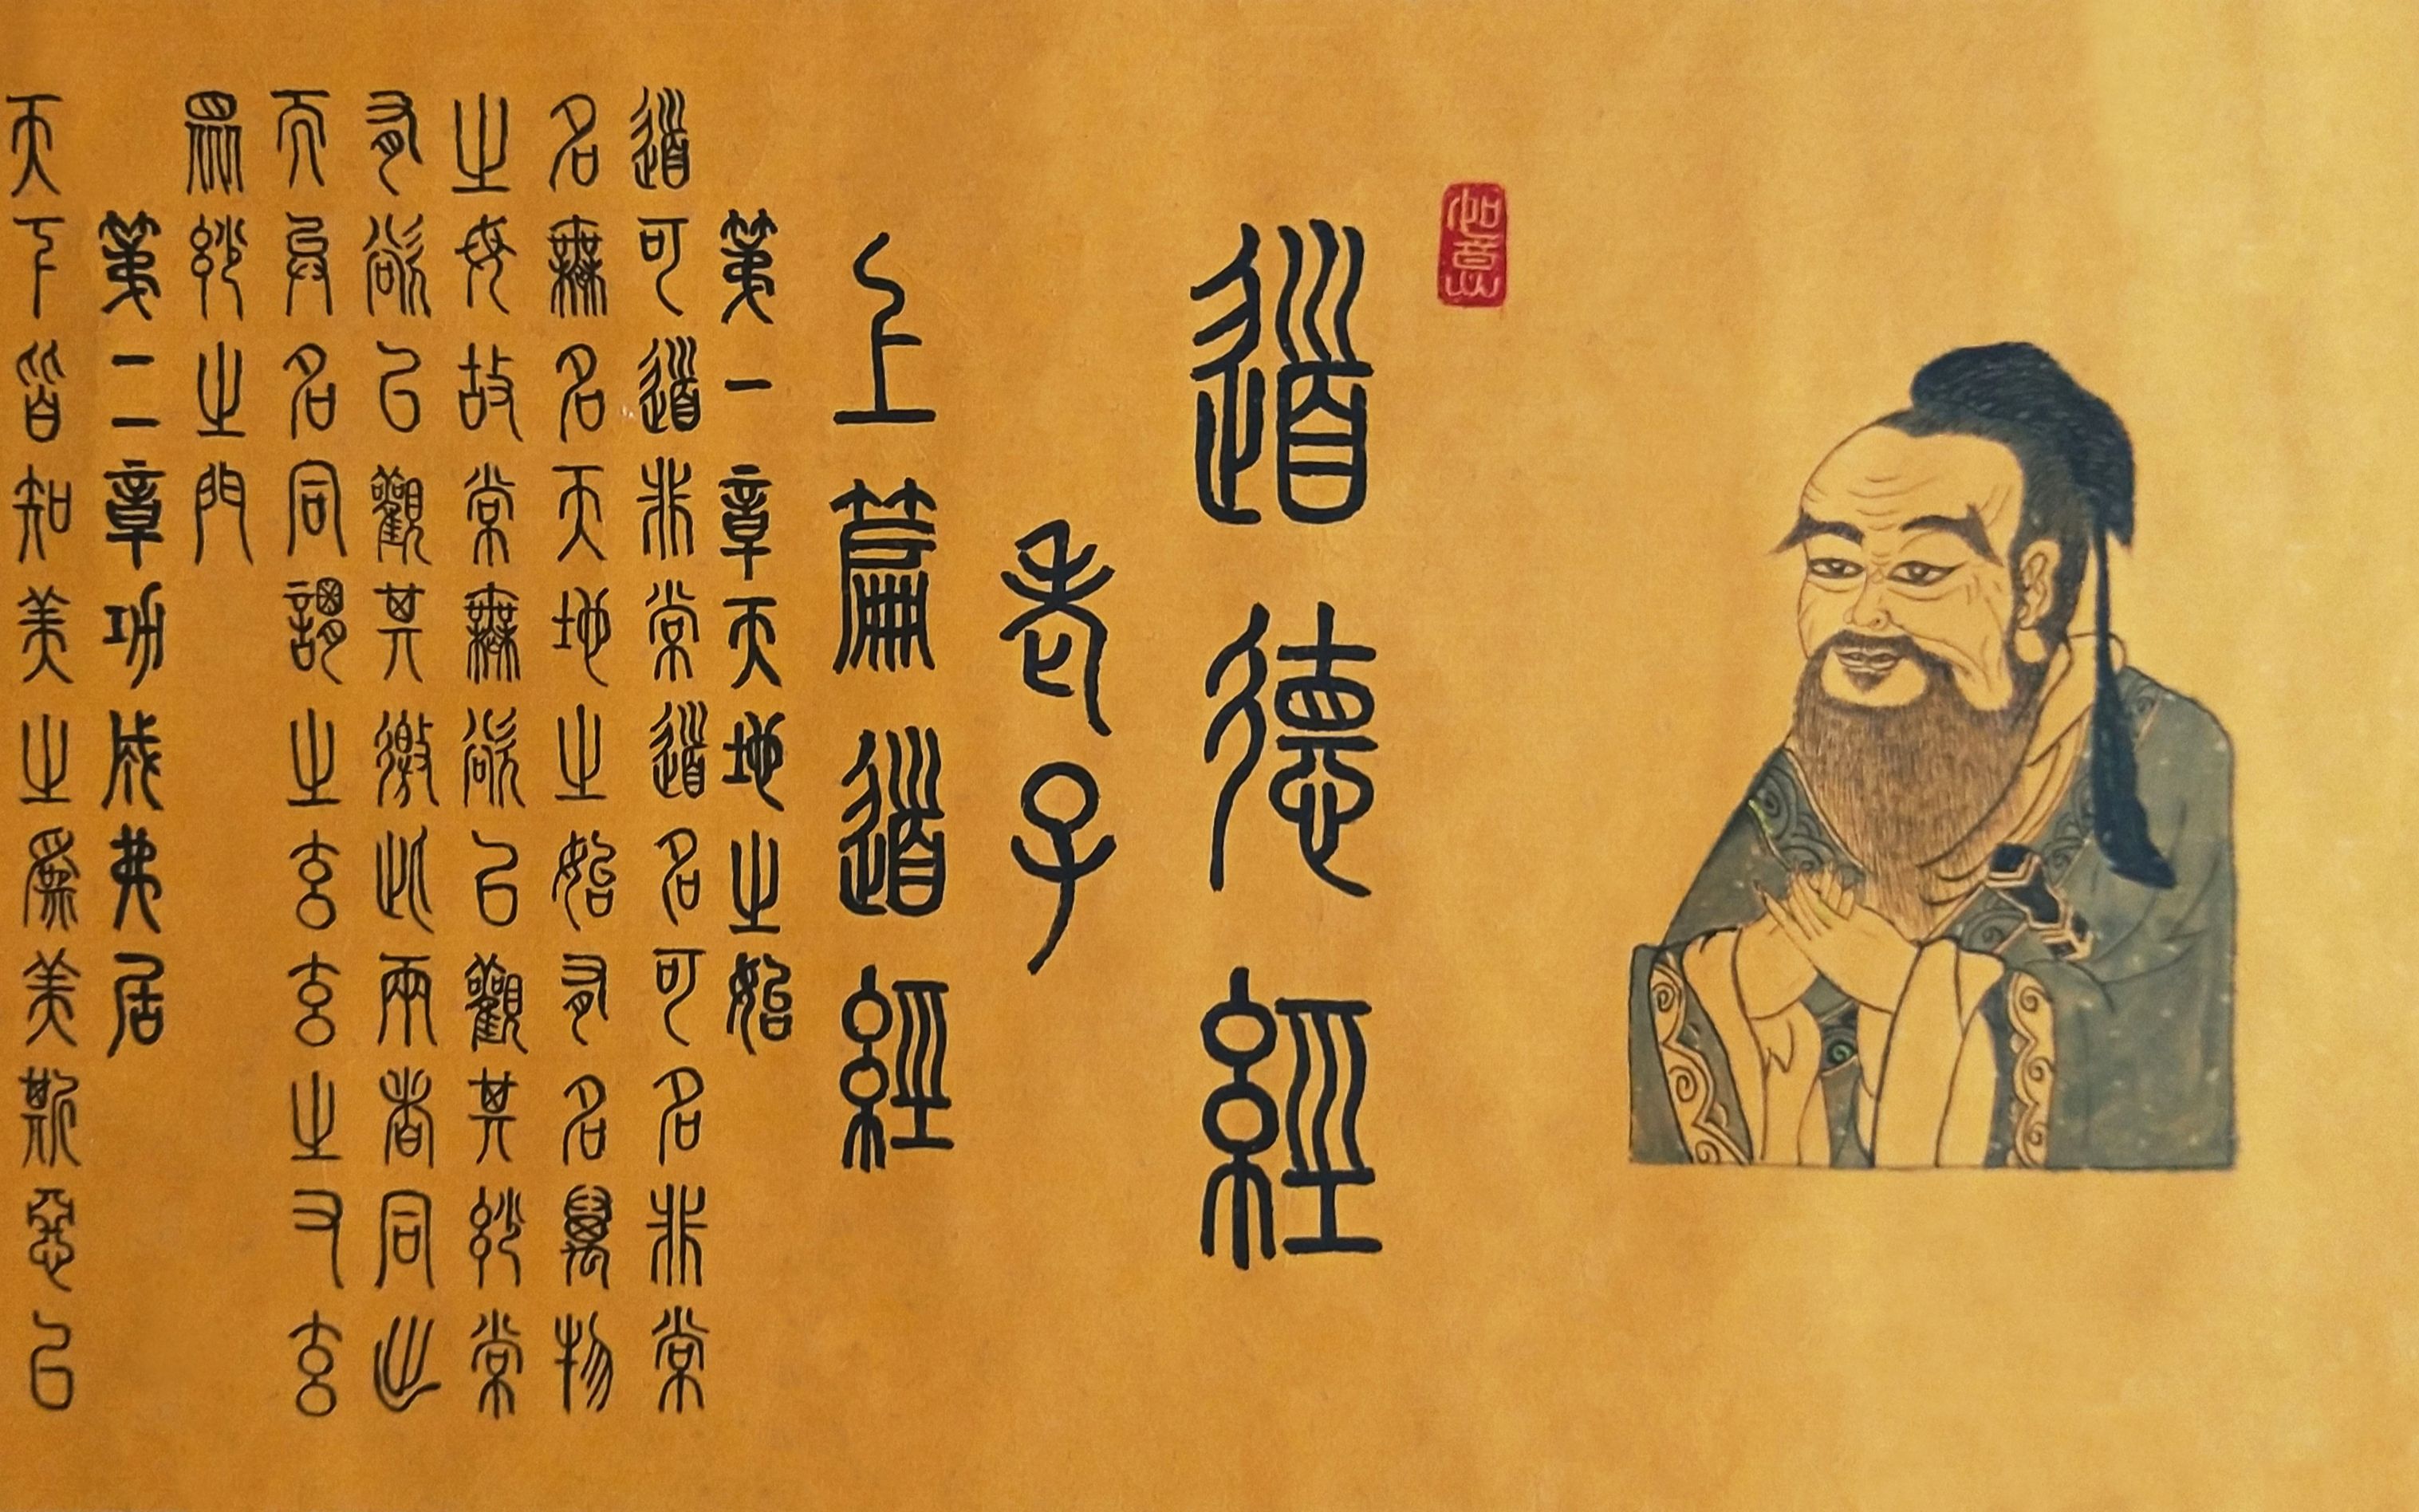 如意
道德經
老子
上篇道經
第一章天地之始
道可道非常道名可名非常
名無名天地之始有名萬物
之母故常無欲以觀其妙常
有欲以觀其徼此兩者同出
而異名同謂之玄玄之又玄
眾妙之門
第二章功成弗居
天下皆知美之為美斯惡已